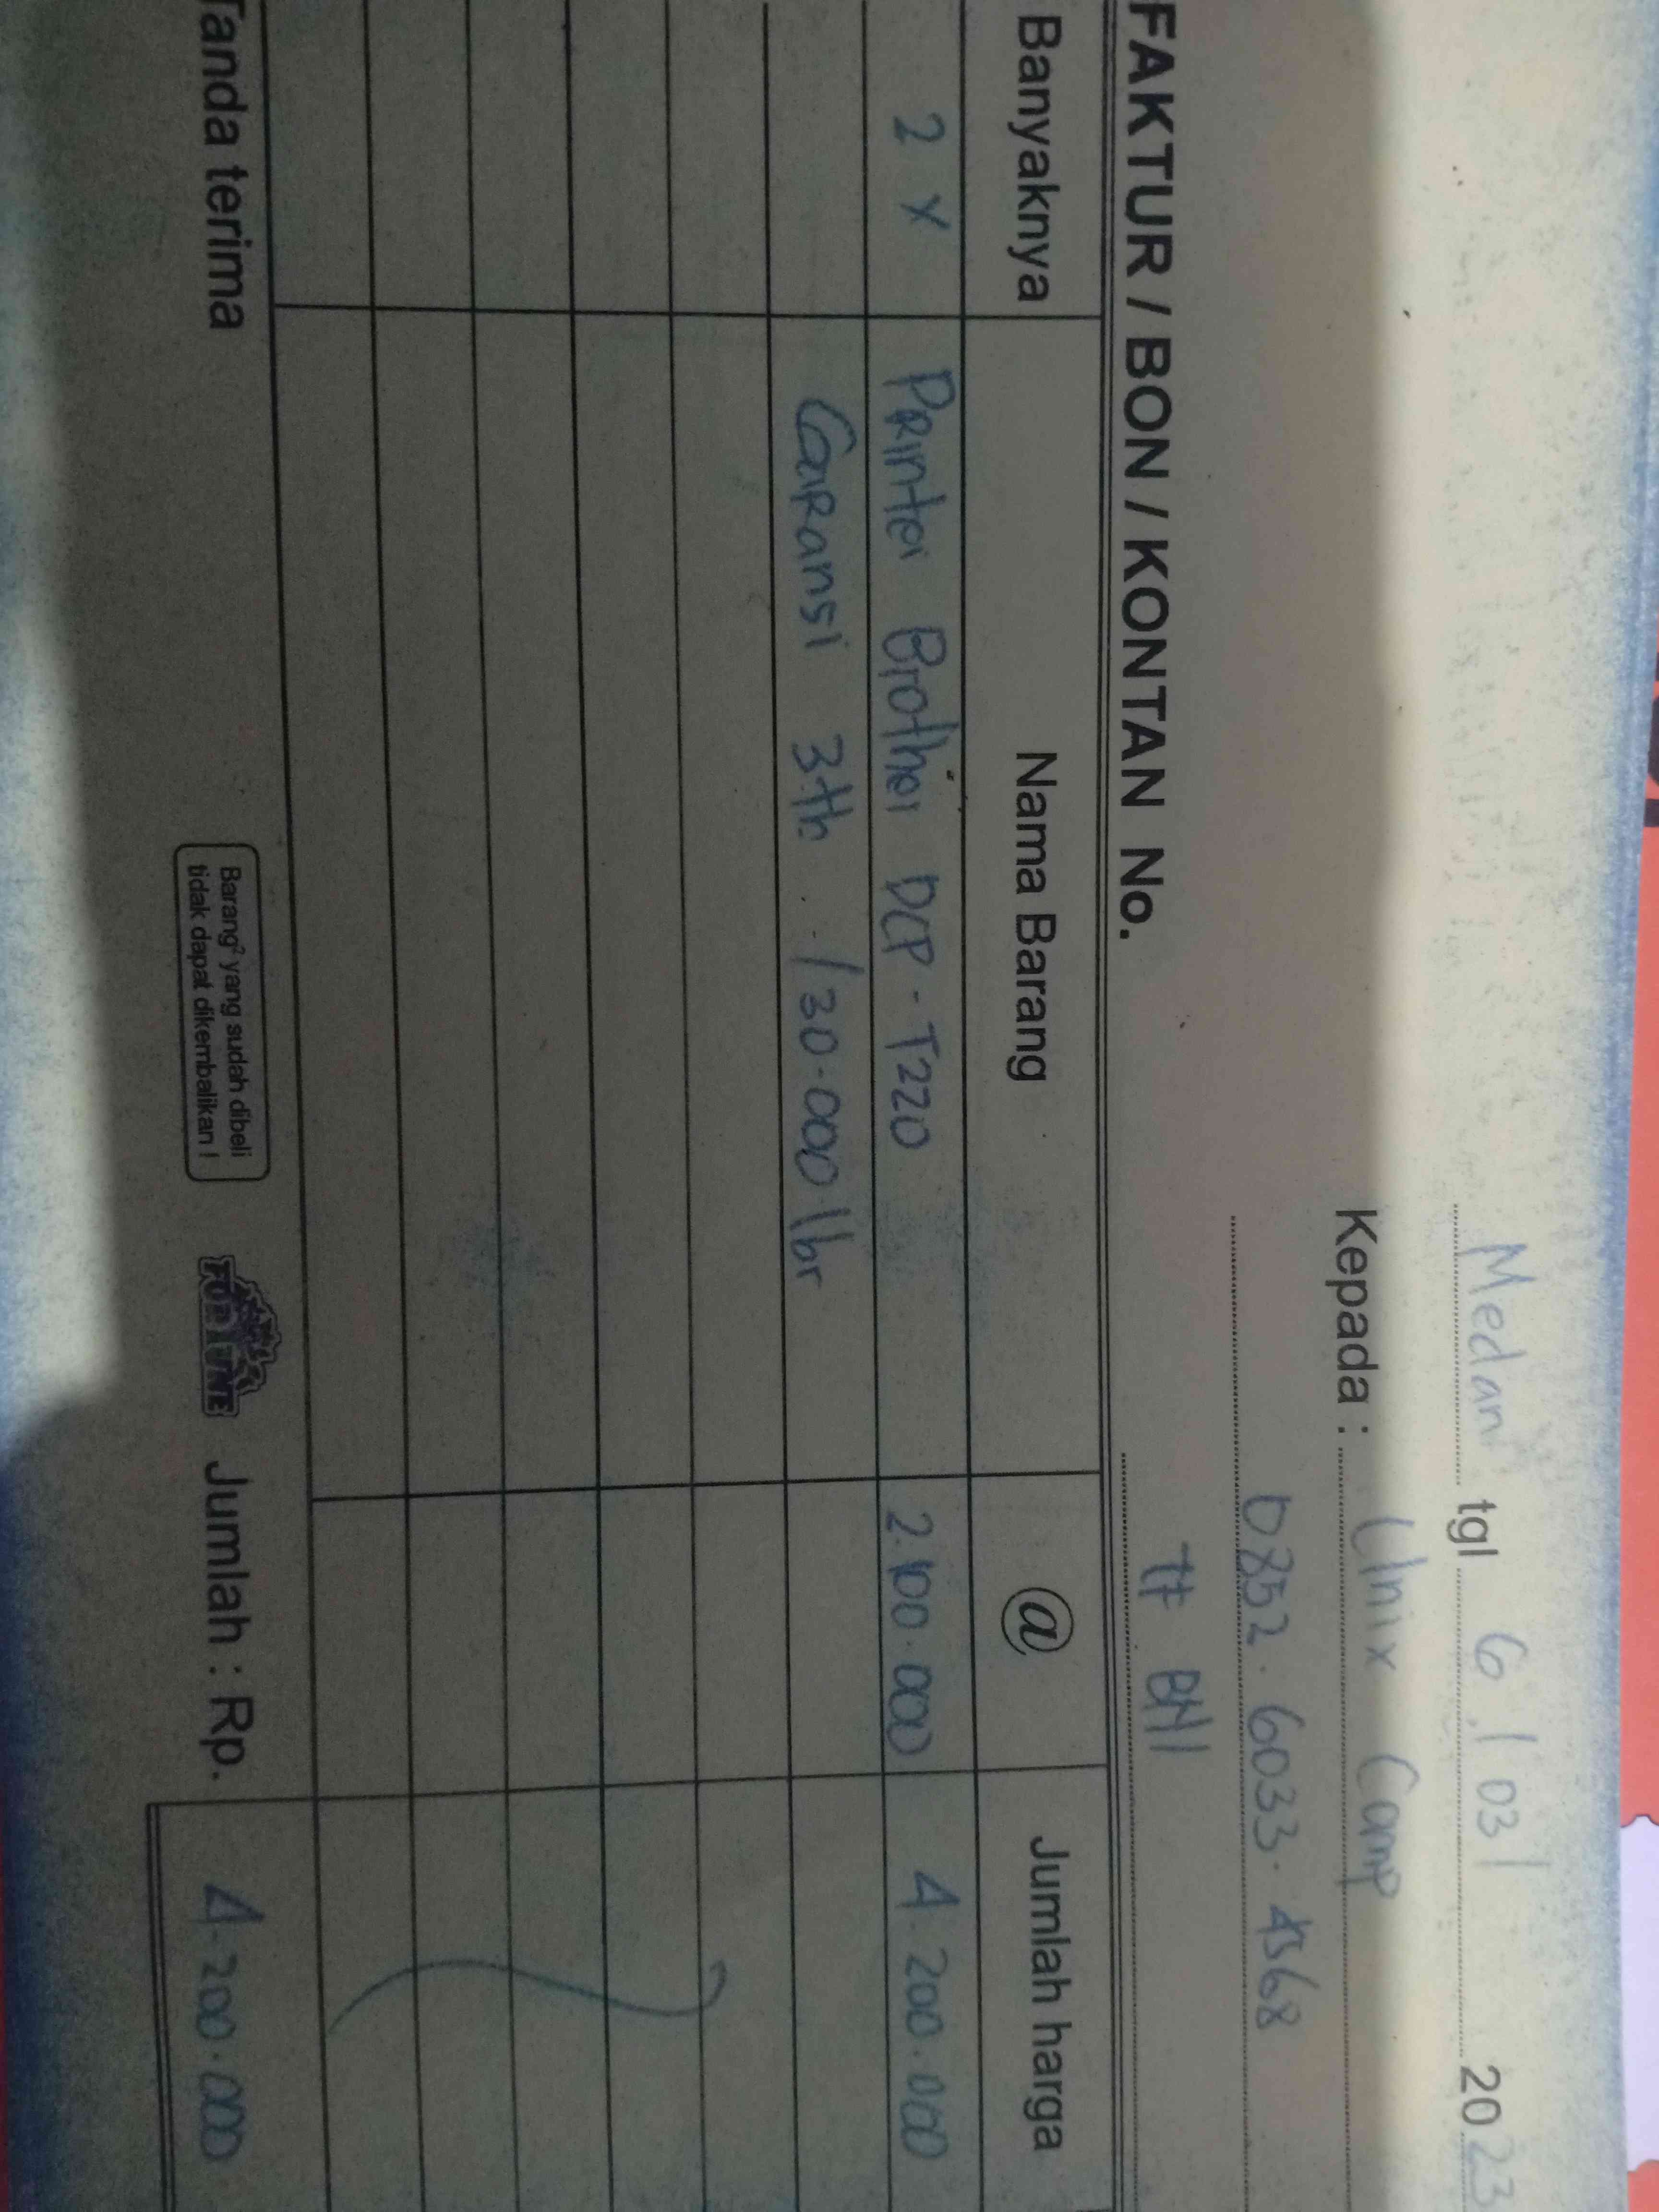 Medan tgl 6/03/ 2023
Kepada : Unix Comp
0852.6033.4568
FAKTUR / BON / KONTAN No. # BNI
Banyaknya Nama Barang @ Jumlah harga
2 x Printer Brother DCP-T220 2.100.000 4.200.000
Garansi 3th /30.000 lbr
Tanda terima Barang² yang sudah dibeli tidak dapat dikembalikan ! FORTUNE Jumlah : Rp. 4.200.000